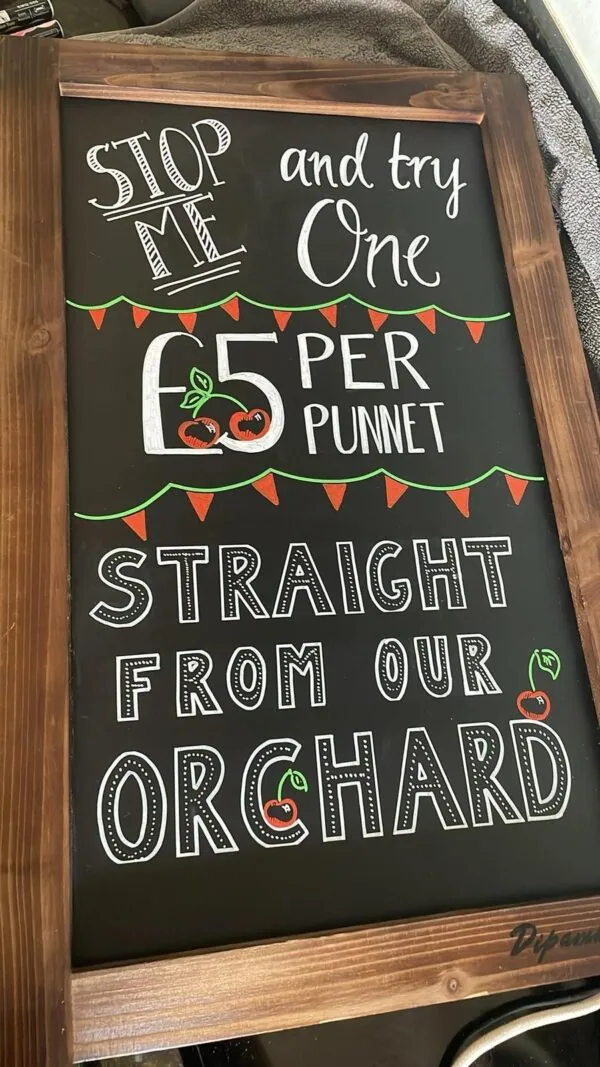 STOP and try
ME One
£5 PER
PUNNET
STRAIGHT
FROM OUR
ORCHARD